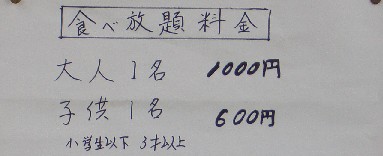 食べ放題料金
大人1名 1000円
子供1名 600円
小学生以下 3才以上